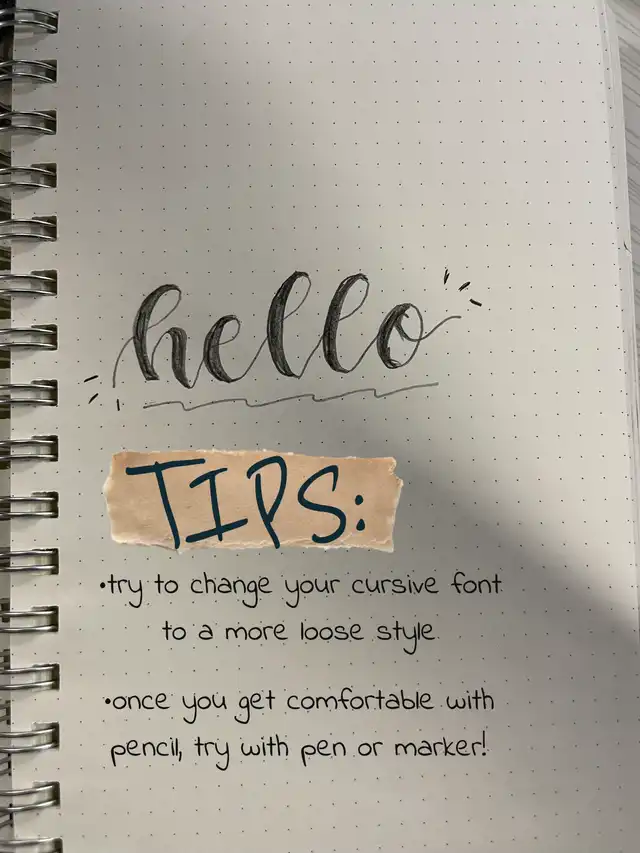 hello
TIPS:
•try to change your cursive font
to a more loose style
•once you get comfortable with
pencil, try with pen or marker!